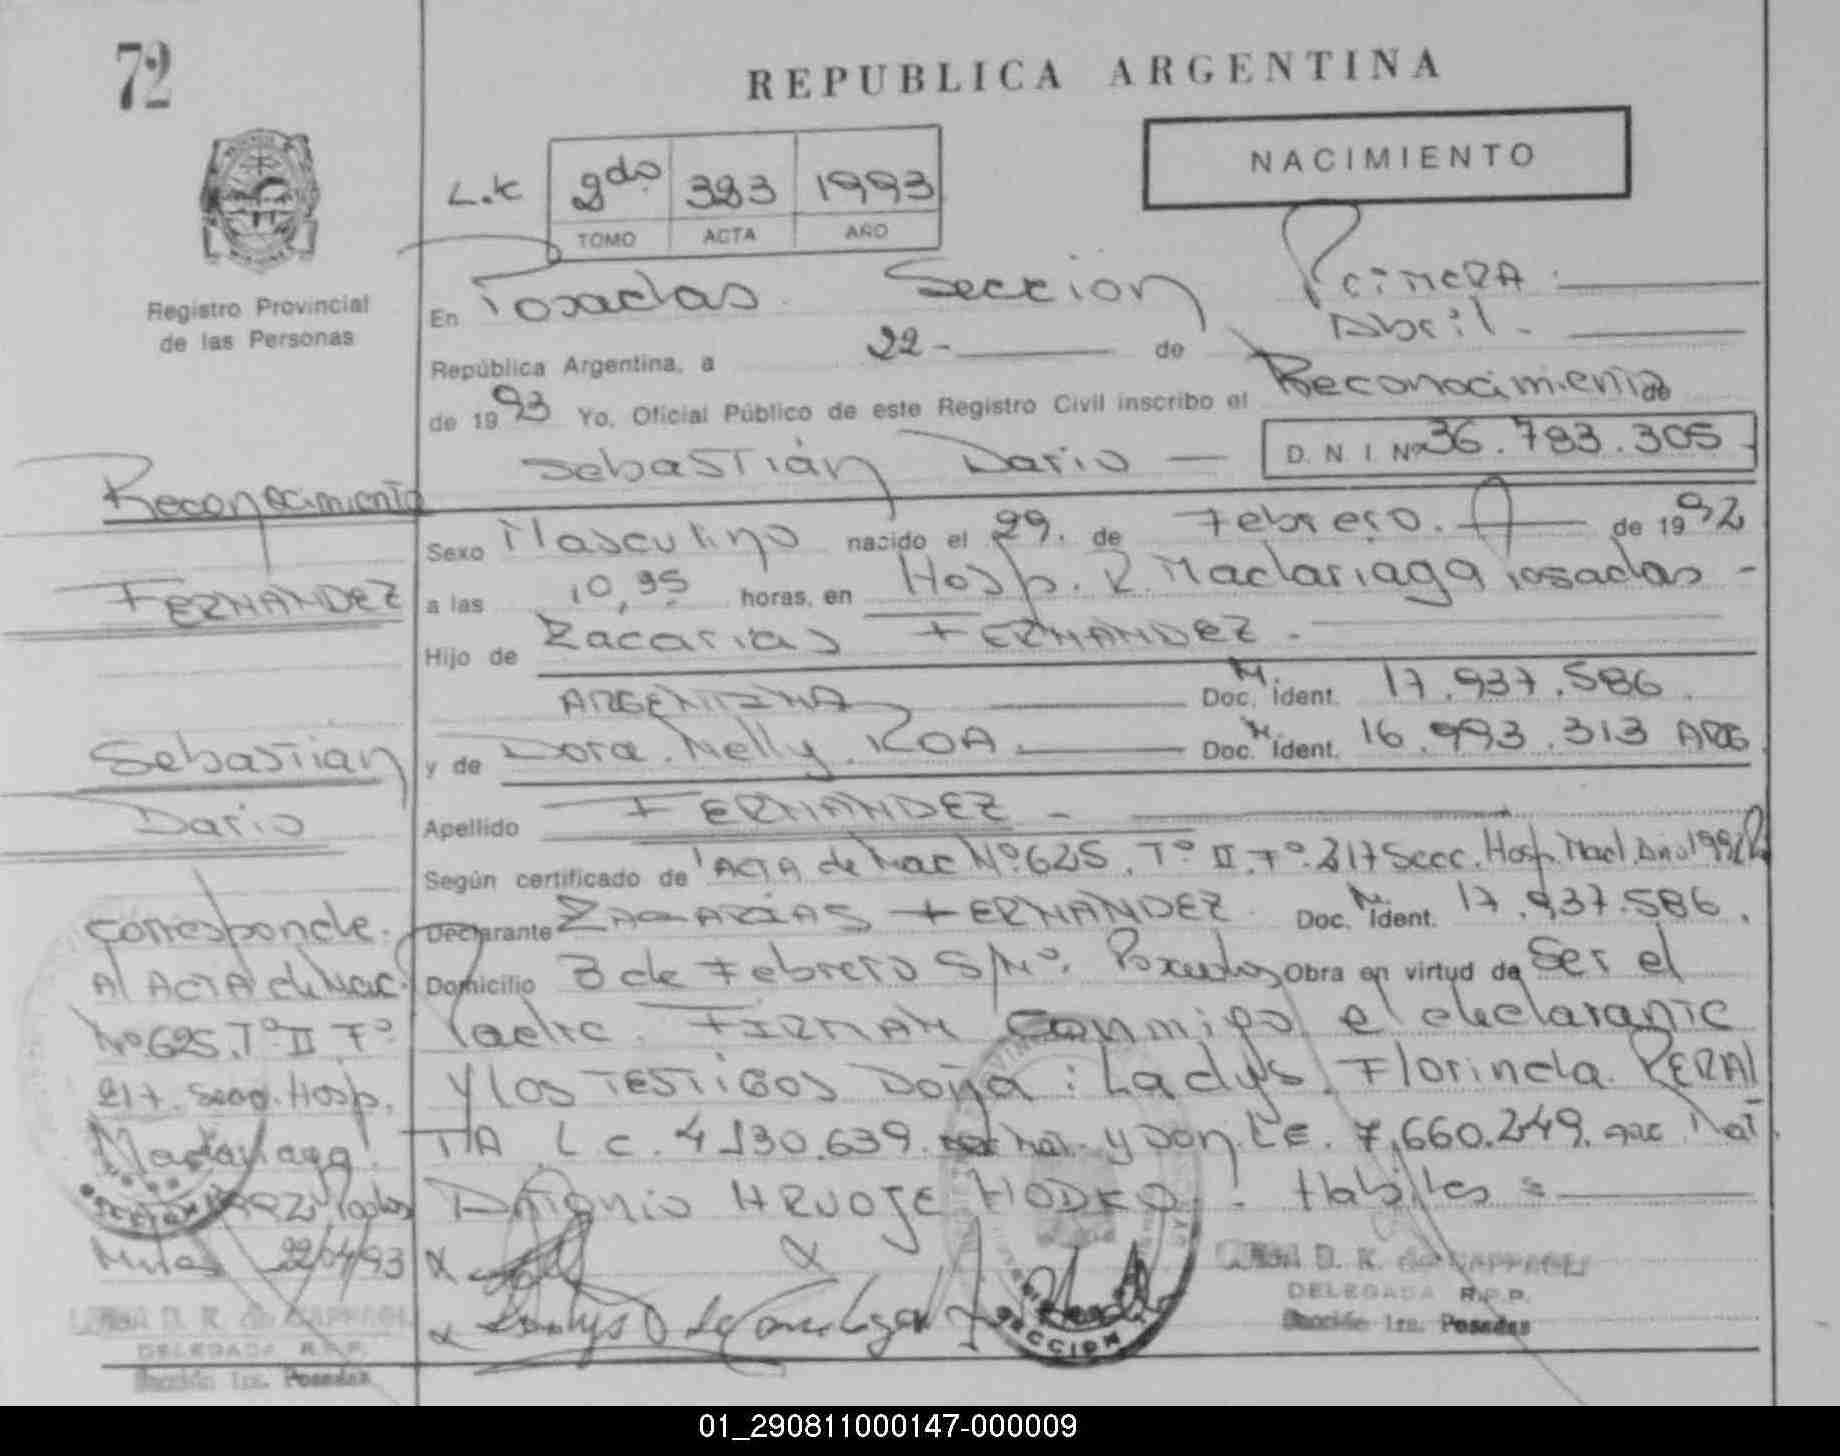 72
REPUBLICA ARGENTINA
NACIMIENTO
2do 383 1993
TOMO ACTA AÑO
Registro Provincial
de las Personas
En Posadas. Sección Primera
República Argentina, a 22 - de Abril -
de 1993 Yo, Oficial Público de este Registro Civil inscribo el Reconocimiento de
Sebastián Dario — D. N. I. Nº 36.783.305
Reconocimiento
FERNANDEZ
Sebastián
Dario
Corresponde
Al ACTA de Nac.
Nº 625. Tº II Fº
217. Secc. Hosp.
Madariaga
22/04/93
DELEGADA R.P.P.
Sección 1ra. Posadas
Sexo Masculino nacido el 29. de Febrero. de 1992
a las horas, en Hosp. R. Madariaga Posadas -
Hijo de Zacarias FERNANDEZ -
ARGENTINA Doc. M. Ident. 17.937.586
y de Dora Nelly ROA Doc. M. Ident. 16.993.313 ARG
Apellido FERNANDEZ -
Según certificado de ACTA de Nac Nº 625. Tº II. Fº. 217 Secc. Hosp. Mad. Año 1992
Declarante ZACARIAS FERNANDEZ Doc. M. Ident. 17.937.586.
Domicilio 3 de Febrero S/Nº. Posadas Obra en virtud de Ser el
Padre. FIRMAN Conmigo el declarante
y los TESTIGOS Doña: Ladys Florinda PERAL
TA L.C. 4130.639. y Don L.E. 7.660.249.
Antonio HRUOJE HODKO. Habiles =
DELEGADA R.P.P.
Sección 1ra. Posadas
SECCION
01_290811000147-000009